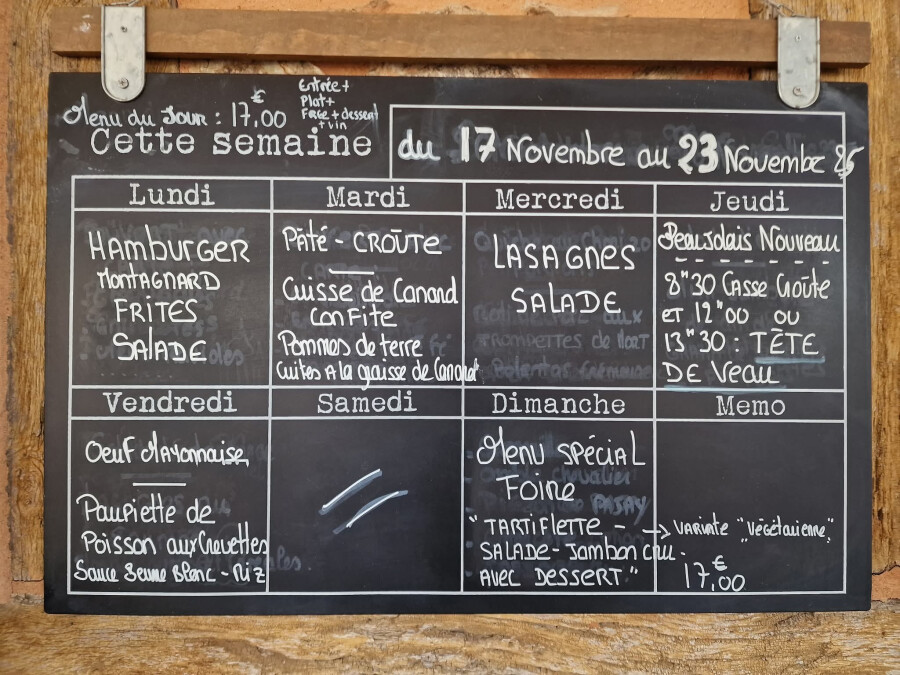 Menu du Jour : 17,00 €
Entrée +
Plat +
Frge + dessert
+ vin
Cette semaine
du 17 Novembre au 23 Novembe 25
Lundi
Hamburger
Montagnard
Frites
Salade
Mardi
Pâté - Croûte
Cuisse de Canard
Confite
Pommes de terre
Cuites à la graisse de Canard
Mercredi
Lasagnes
Salade
Jeudi
Beaujolais Nouveau
8"30 Casse Croûte
et 12"00 ou
13"30 : Tête
de Veau
Vendredi
Oeuf Mayonnaise
Paupiette de
Poisson aux Crevettes
Sauce Beurre Blanc - Riz
Samedi
Dimanche
Menu spécial
Foire
"Tartiflette -
Salade - Jambon cru -
avec dessert"
Memo
→ variate "Végétarienne"
17,00 €